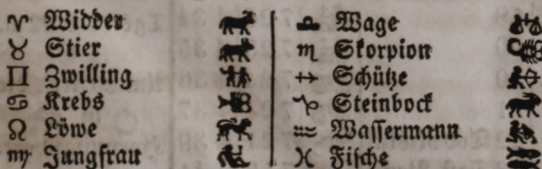 ♈ Widder
♉ Stier
♊ Zwilling
♋ Krebs
♌ Löwe
♍ Jungfrau
♎ Wage
♏ Skorpion
♐ Schütze
♑ Steinbock
♒ Wassermann
♓ Fische